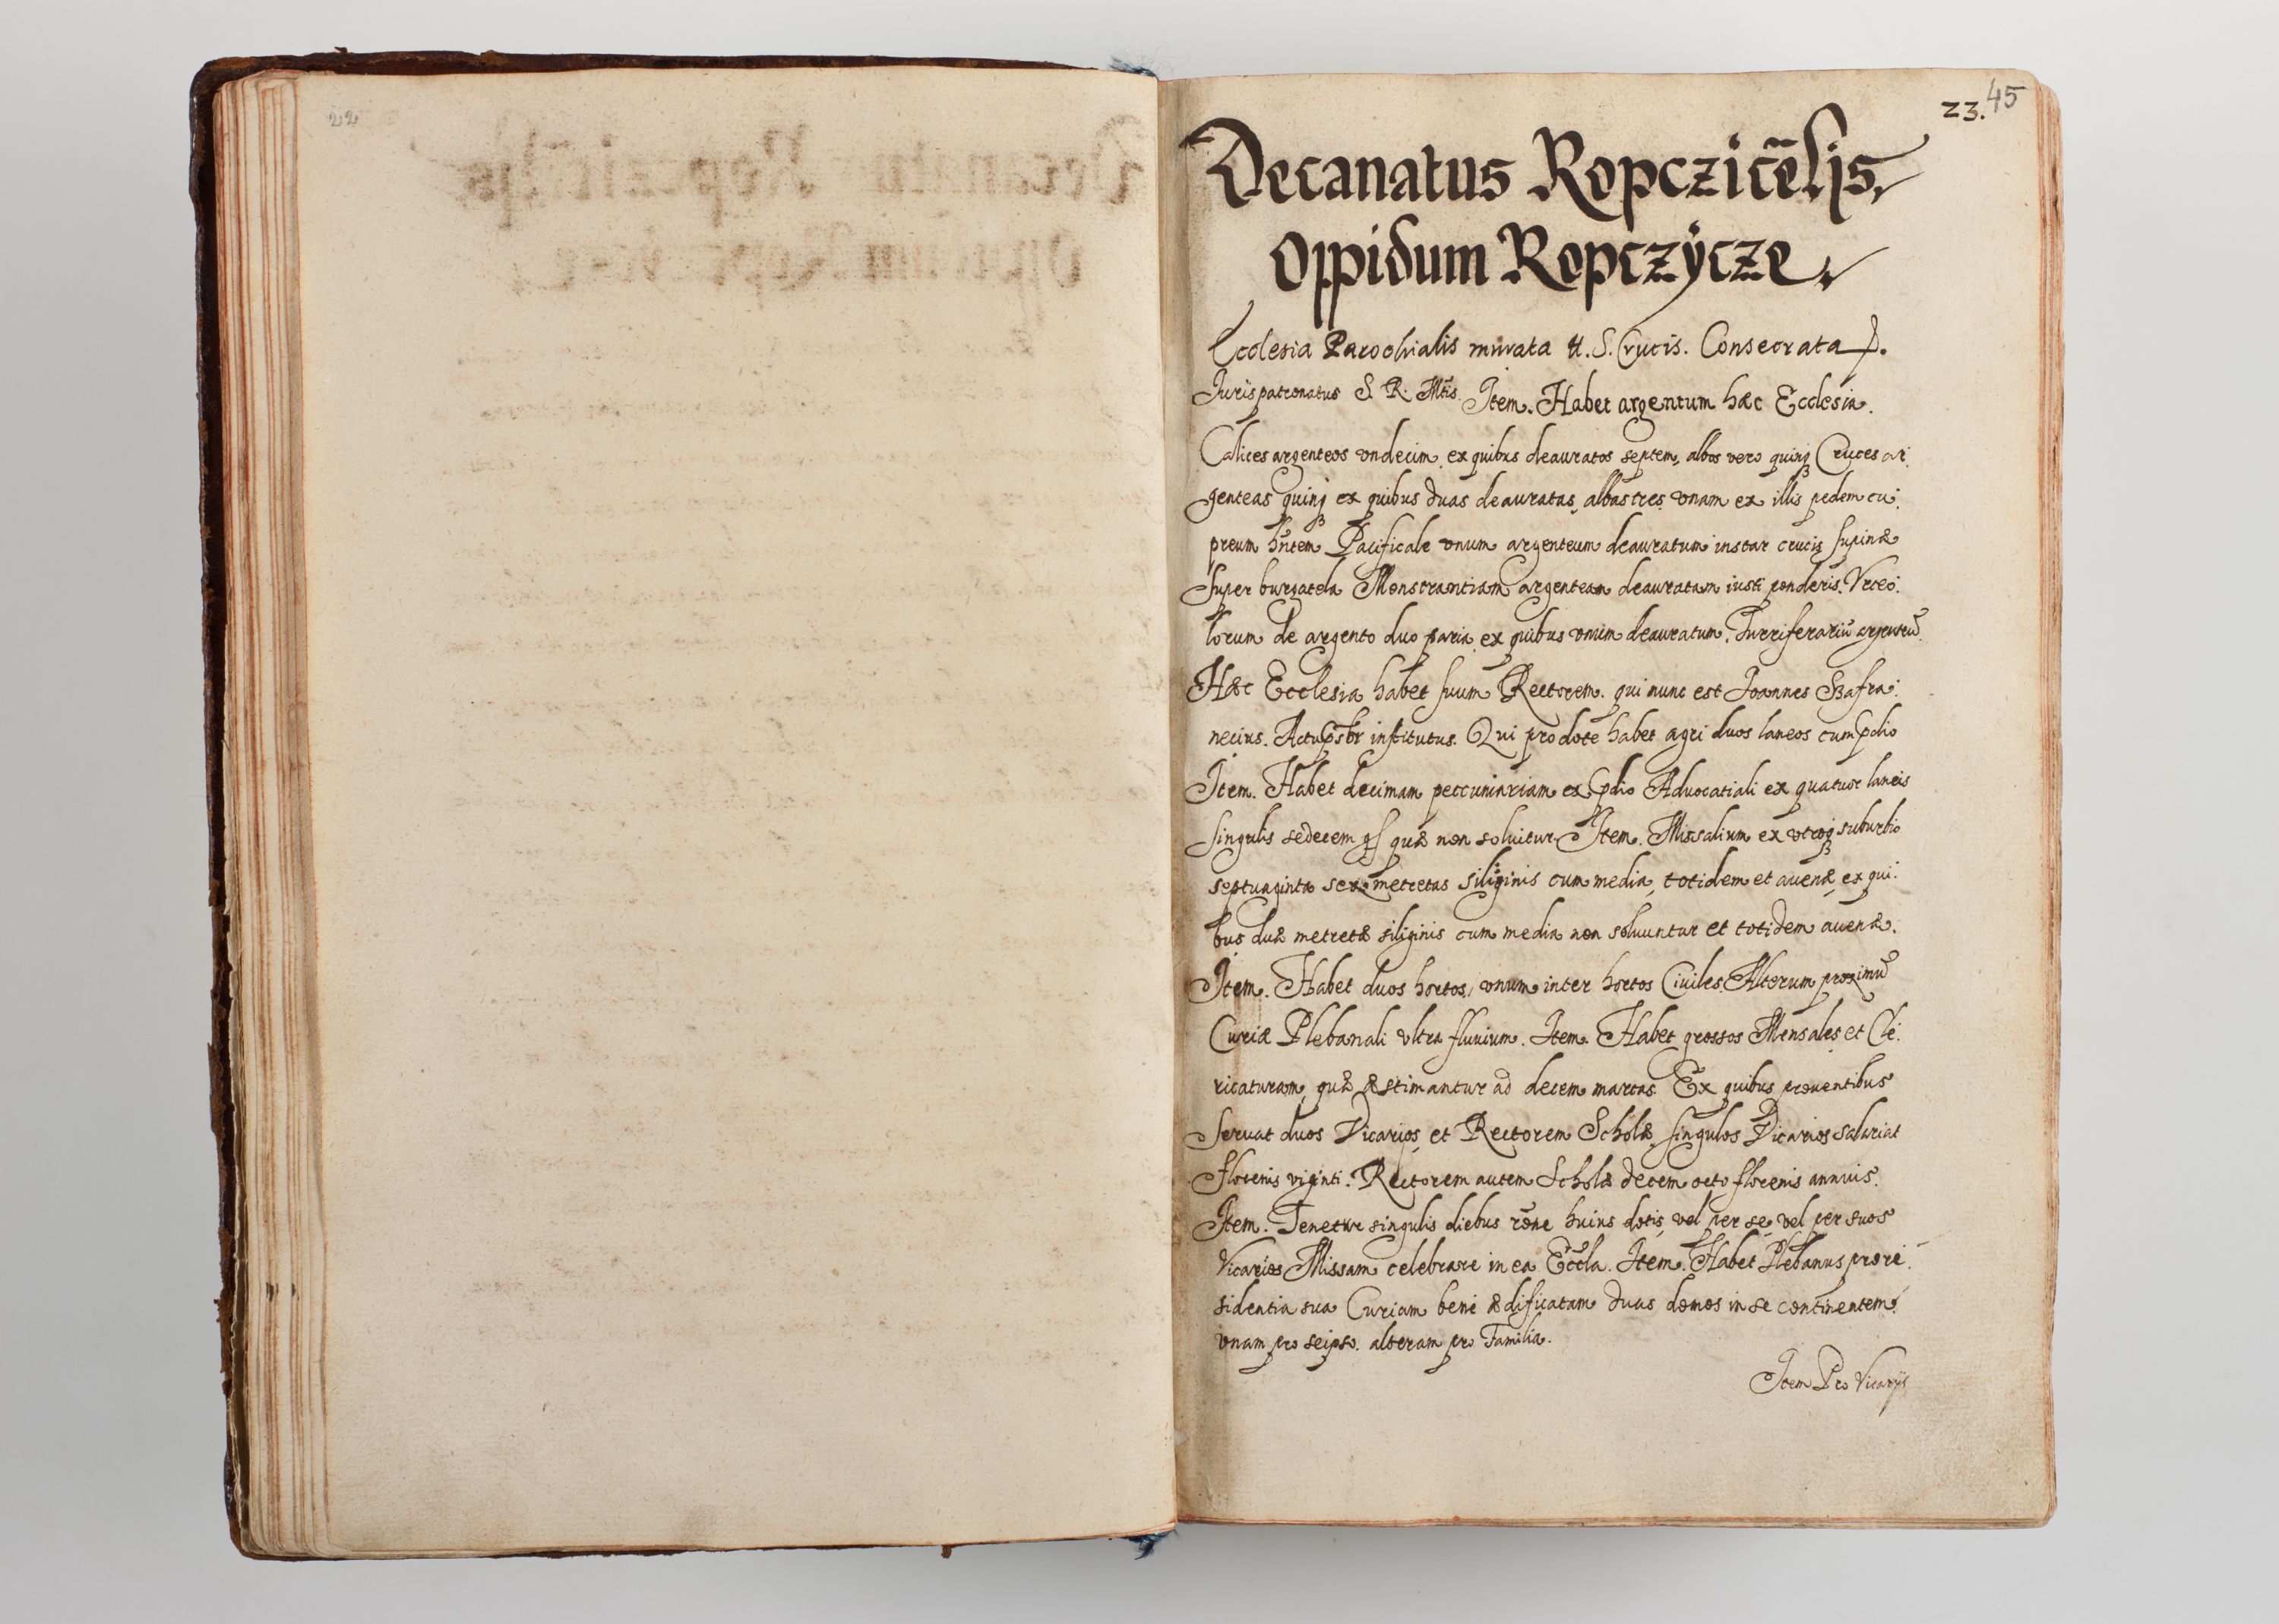 22
23. 45
Decanatus Ropcziceñsis.
Oppidum Ropczÿcze.
Ecclesia Parochialis murata tt. S. Crucis. Consecrata.
Jurispatronatus S. R. Mtis. Item. Habet argentum hæc Ecclesia.
Calices argenteos vndecim, ex quibus deauratos septem, albos vero quinq3 Cruces ar:
genteas quinq3 ex quibus duas deauratas, albas tres, vnam ex illis pedem cu:
preum hñtem Pacificale vnum argenteum deauratum instar crucis supinæ
super burgatela Monstrantiam argenteam deauratam iusti ponderis. Vrceo:
lorum de argento duo paria, ex quibus vnum deauratum. Turriferariũ argenteũ.
Hæc Ecclesia habet suum Rectorem. qui nunc est Joannes
necius. institutus. Qui pro dote habet agri duos laneos cum pdio
Item. Habet decimam peccuniariam ex pdio Aduocatiali ex quatuor laneis
singulis sedecem quæ non soluitur. Item. Missalium ex vtroq3 suburbio
septuaginta sex metretas siliginis cum media, totidem et auenæ, ex qui:
bus duæ metretæ siliginis cum media non soluuntur et totidem auenæ.
Item. Habet duos hortos, vnum inter hortos Ciuiles Alterum proximũ
Curiæ Plebanali vltra fluuium. Item. Habet grossos Mensales et Cle:
ricaturam, quæ æstimantur ad decem marcas. Ex quibus prouentibus
seruat duos Vicarios et Rectorem Scholæ, singulos Vicarios salariat
florenis viginti. Rectorem autem Scholæ decem octo florenis annuis.
Item. Tenetur singulis diebus rõne huius dotis vel per se vel per suos
Vicarios Missam celebrare in ea Eccla. Item. Habet Plebanus pro re:
sidentia sua Curiam bene ædificatam duas domos in se continentem.
vnam pro seipso. alteram pro Familia.
Item Pro Vicarijs